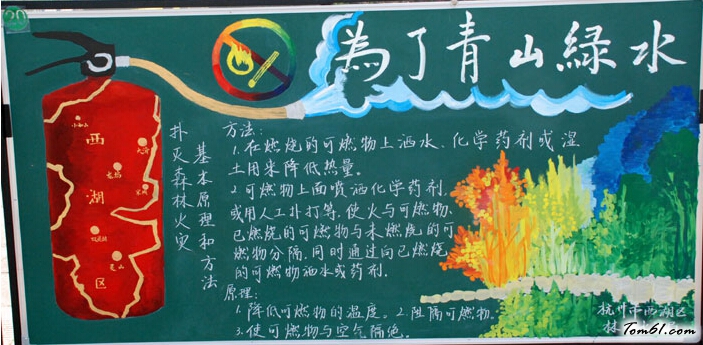 20
為了青山緑水
西湖区
扑灭森林火灾
基本原理和方法
方法:
1.在燃烧的可燃物上洒水、化学药剂或湿
土用来降低热量。
2.可燃物上面喷洒化学药剂,
或用人工扑打等,使火与可燃物、
已燃烧的可燃物与未燃烧的可
燃物分隔,同时通过向已燃烧
的可燃物洒水或药剂.
原理:
1.降低可燃物的温度。2.阻隔可燃物.
3.使可燃物与空气隔绝.
杭州市西湖区
林
Tom61.com